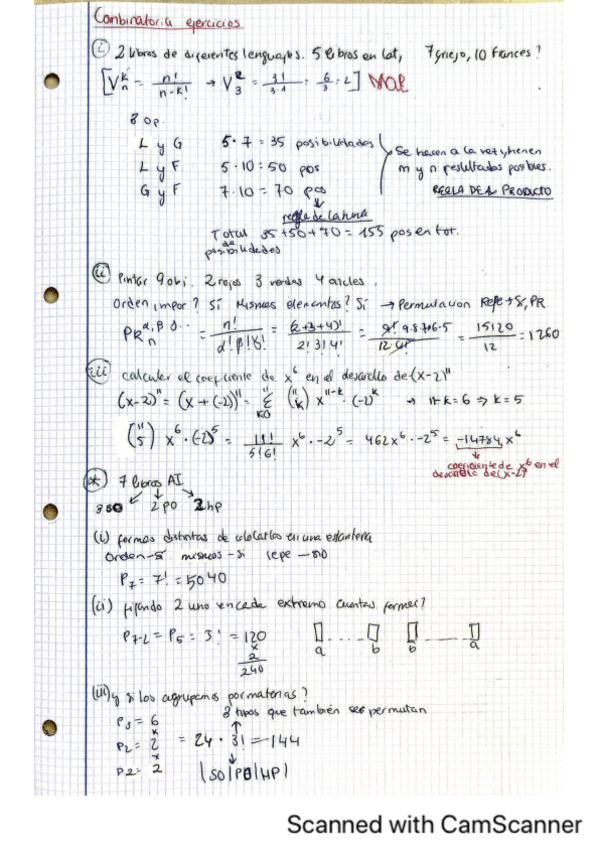 Combinatoria ejercicios
(i) 2 libros de diferentes lenguajes. 5 libros en lat, 7 griejo, 10 Frances?
[V_n^k = n!/n-k! → V_3^2 = 3!/3·1 = 6/3 = 2] MAL
3 Op.
L y G 5·7=35 posibilidades
L y F 5·10=50 pos
G y F 7·10=70 pos
Se hacen a la vez y tienen
m y n resultados posibles.
REGLA DEL PRODUCTO
regla de la suma
Total 35+50+70=155 pos en tot.
de
posibilidades
(ii) Pintar 9 obj. 2 rojos 3 verdes 4 azules.
Orden impor? Sí Mismos elementos? Sí → Permutacion Repe → Sí, PR
PR_n^{α,β,γ...} = n!/α!β!γ! = (2+3+4)!/2!3!4! = 9!/12·4! 9·8·7·6·5 = 15120/12 = 1260
(iii) calcular el coeficiente de x^6 en el desarollo de (x-2)^11
(x-2)^11 = (x+(-2))^11 = Σ_{k=0}^{11} (11 k) x^{11-k} · (-2)^k → 11-k=6 ⇒ k=5
(11 5) x^6 · (-2)^5 = 11!/5!6! x^6 · -2^5 = 462x^6 · -2^5 = -14784, x^6
coeficiente de x^6 en el
desarollo de (x-2)^11
(*) 7 libros AI
3 SO 2 PO 2 HP
(i) formas distintas de colocarlos en una estanteria
Orden-Sí mismos-si repe - NO
P_7 = 7! = 5040
(ii) fijando 2 uno en cada extremo cuantas formas?
P_{7-2} = P_5 = 5! = 120
x
2
240
a b b a
(iii) y si los agrupamos por materias?
3 tipos que también se permutan
P_3 = 6
x
P_2 = 2 = 24 · 3! = 144
x
P_2 = 2 |SO|PO|HP|
Scanned with CamScanner